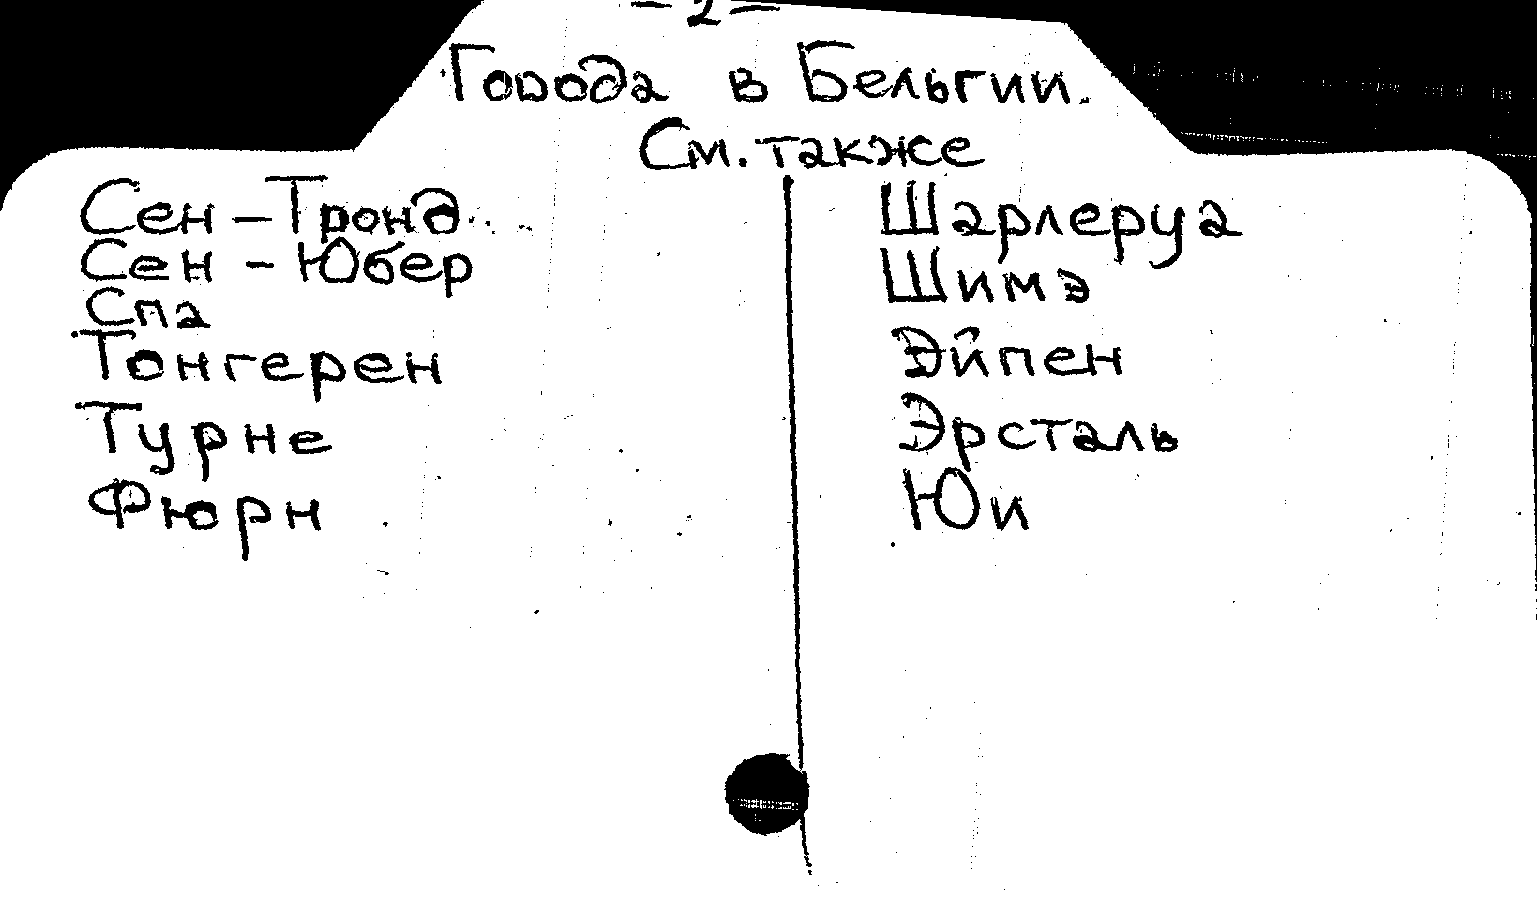 – 2 –
Города в Бельгии.
См. также
Сен – Тронд
Сен – Юбер
Спа
Тонгерен
Турне
Фюрн
Шарлеруа
Шимэ
Эйпен
Эрсталь
Юи